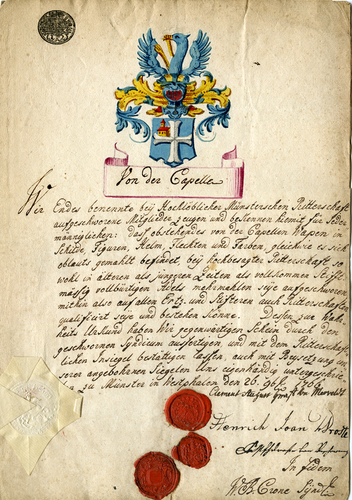 Von der Capelle
Wir Endes benente beÿ Hochlöblicher Münsterschen Ritterschaft
aufgeschworene Mitglieder zeugen und bekennen hiemit für Jeder
männiglichen: daß obstehendes von der Capellen Wapen in
Schilde Figuren, Helm, Flechten und Farben, gleichwie es sich
oblauts gemahlt befindet, beÿ hochbesagter Ritterschaft so
wohl in älteren als jüngeren Zeiten als vollkommen Stifts
mäßig vollbürtigen Adels mehrmahlen seÿe aufgeschworen,
mithin also auf allen Ertz und Stifteren auch Ritterschaften
qualificirt seÿe und bestehen könne. Dessen zur Wahr
heits Urkund haben Wir gegenwärtigen Schein durch den
geschwornen Syndicum ausfertigen und mit dem Ritterschaft
lichen Insiegel bestättigen lassen, auch mit Beysetzung un
serer angebohrnen Siegelen Uns eigenhändig unterschrie
ben zu Münster in Westphalen den 26. 1706
Clement August von Merveldt
Henrich Joan Droste
In fidem
W. B. Crone Syndic